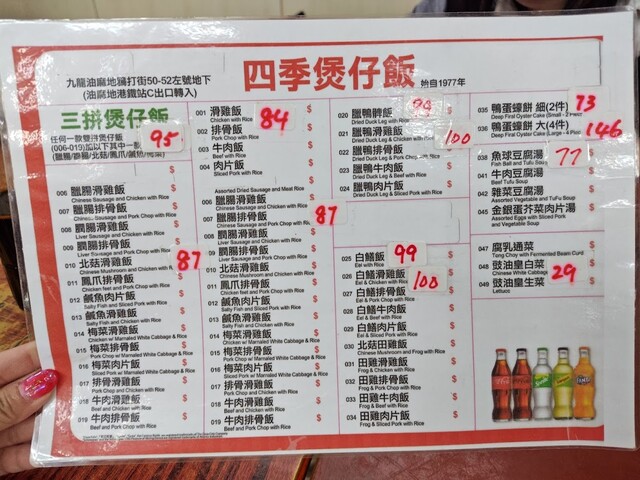 九龍油麻地鴉打街50-52左號地下
(油麻地港鐵站C出口轉入)
四季煲仔飯 始自1977年
三拼煲仔飯
任何一款雙拼煲仔飯
(006-019)加以下其中一款
95
006 臘腸滑雞飯 $
Chinese Sausage and Chicken with Rice
007 臘腸排骨飯 $
Chinese Sausage and Pork Chop with Rice
008 膶腸滑雞飯 $
Liver Sausage and Chicken with Rice
009 膶腸排骨飯 $
Liver Sausage and Pork Chop with Rice
010 北菇滑雞飯 87
Chinese Mushroom and Chicken with Rice
011 鳳爪排骨飯 $
Chicken feet and Pork Chop with Rice
012 鹹魚肉片飯 $
Salty Fish and Sliced Pork with Rice
013 鹹魚滑雞飯 $
Salty Fish and Chicken with Rice
014 梅菜滑雞飯 $
Chicken w/ Marnaled White Cabbage & Rice
015 梅菜排骨飯 $
Pork Chop w/ Marnaled White Cabbage & Rice
016 梅菜肉片飯 $
Sliced Pork w/ Marnaled White Cabbage & Rice
017 排骨滑雞飯 $
Pork Chop and Chicken with Rice
018 牛肉滑雞飯 $
Beef and Chicken with Rice
019 牛肉排骨飯 $
Beef and Pork Chop with Rice
001 滑雞飯 84 $
Chicken with Rice
002 排骨飯 $
Pork Chop with Rice
003 牛肉飯 $
Beef with Rice
004 肉片飯 $
Sliced Pork with Rice
Assorted Dried Sausage and Meat Rice
006 臘腸滑雞飯 $
Chinese Sausage and Chicken with Rice
007 臘腸排骨飯 87
Chinese Sausage and Pork Chop with Rice
008 膶腸滑雞飯 $
Liver Sausage and Chicken with Rice
009 膶腸排骨飯 $
Liver Sausage and Pork Chop with Rice
010 北菇滑雞飯 $
Chinese Mushroom and Chicken with Rice
011 鳳爪排骨飯 $
Chicken feet and Pork Chop with Rice
012 鹹魚肉片飯 $
Salty Fish and Sliced Pork with Rice
013 鹹魚滑雞飯 $
Salty Fish and Chicken with Rice
014 梅菜滑雞飯 $
Chicken w/ Marnaled White Cabbage & Rice
015 梅菜排骨飯 $
Pork Chop w/ Marnaled White Cabbage & Rice
016 梅菜肉片飯 $
Sliced Pork w/ Marnaled White Cabbage & Rice
017 排骨滑雞飯 $
Pork Chop and Chicken with Rice
018 牛肉滑雞飯 $
Beef and Chicken with Rice
019 牛肉排骨飯 $
Beef and Pork Chop with Rice
020 臘鴨髀飯 $
Dried Duck Leg with Rice
021 臘鴨滑雞飯 100
Dried Duck Leg & Chicken with Rice
022 臘鴨排骨飯 $
Dried Duck Leg & Pork Chop with Rice
023 臘鴨牛肉飯 $
Dried Duck Leg & Beef with Rice
024 臘鴨肉片飯 $
Dried Duck Leg & Sliced Pork with Rice
025 白鱔飯 99
Eel with Rice
026 白鱔滑雞飯 100
Eel & Chicken with Rice
027 白鱔排骨飯 $
Eel & Pork Chop with Rice
028 白鱔牛肉飯 $
Eel & Beef with Rice
029 白鱔肉片飯 $
Eel & Sliced Pork with Rice
030 北菇田雞飯 $
Chinese Mushroom and Frog with Rice
031 田雞滑雞飯 $
Frog & Chicken with Rice
032 田雞排骨飯 $
Frog & Pork Chop with Rice
033 田雞牛肉飯 $
Frog & Beef with Rice
034 田雞肉片飯 $
Frog & Sliced Pork with Rice
035 鴨蛋蠔餅 細(2件) 73
Deep Fired Oyster Cake (Small - 2 Piece)
036 鴨蛋蠔餅 大(4件) 146
Deep Firal Oyster Cake (Large - 4 Piece)
038 魚球豆腐湯 77
Fish Ball and Tufu Soup
041 牛肉豆腐湯 $
Beef Tufu Soup
042 雜菜豆腐湯 $
Assorted Vegetable and TuFu Soup
045 金銀蛋芥菜肉片湯 $
Assorted Eggs with Sliced Pork
and Vegetable Soup
047 腐乳通菜 $
Tong Choy with Fermented Bean Curd
048 豉油皇白菜 29
Chinese White Cabbage
049 豉油皇生菜 $
Lettucc